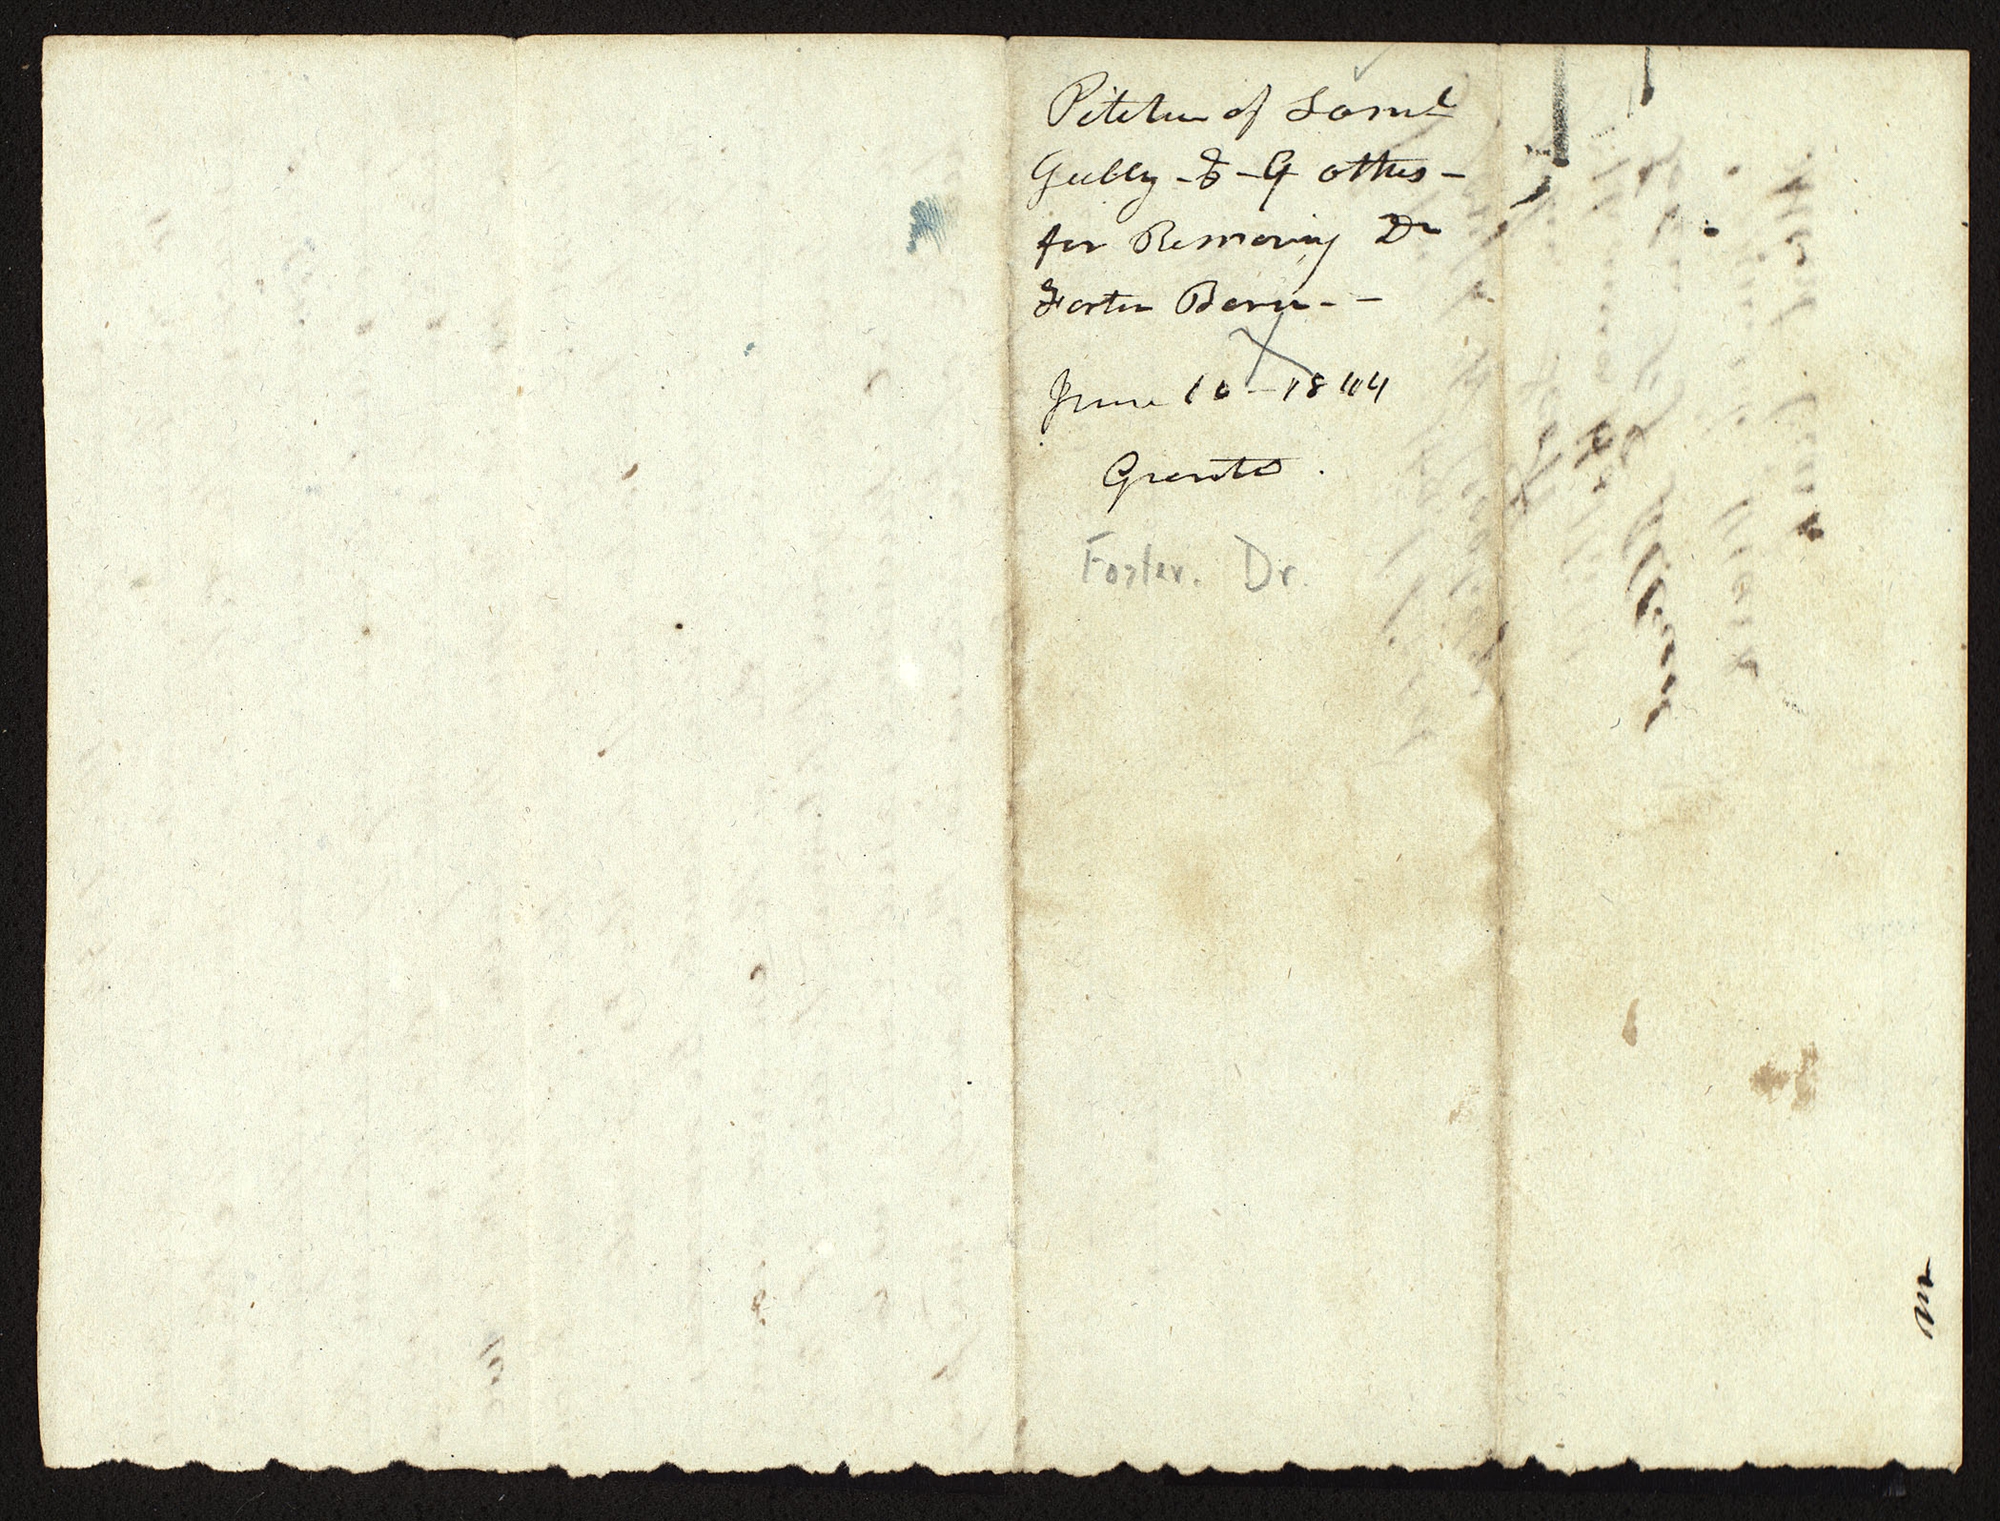 Petition of Saml
Gully & 9 others -
for Removing Dr
Foster Barn - -
June 10 - 1844
Granted .
Foster. Dr.